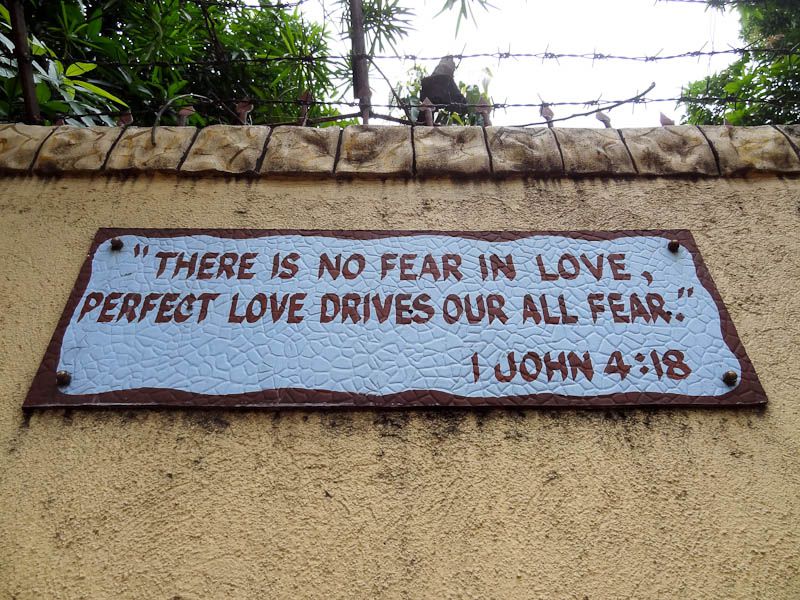 "THERE IS NO FEAR IN LOVE,
PERFECT LOVE DRIVES OUR ALL FEAR."
1 JOHN 4:18